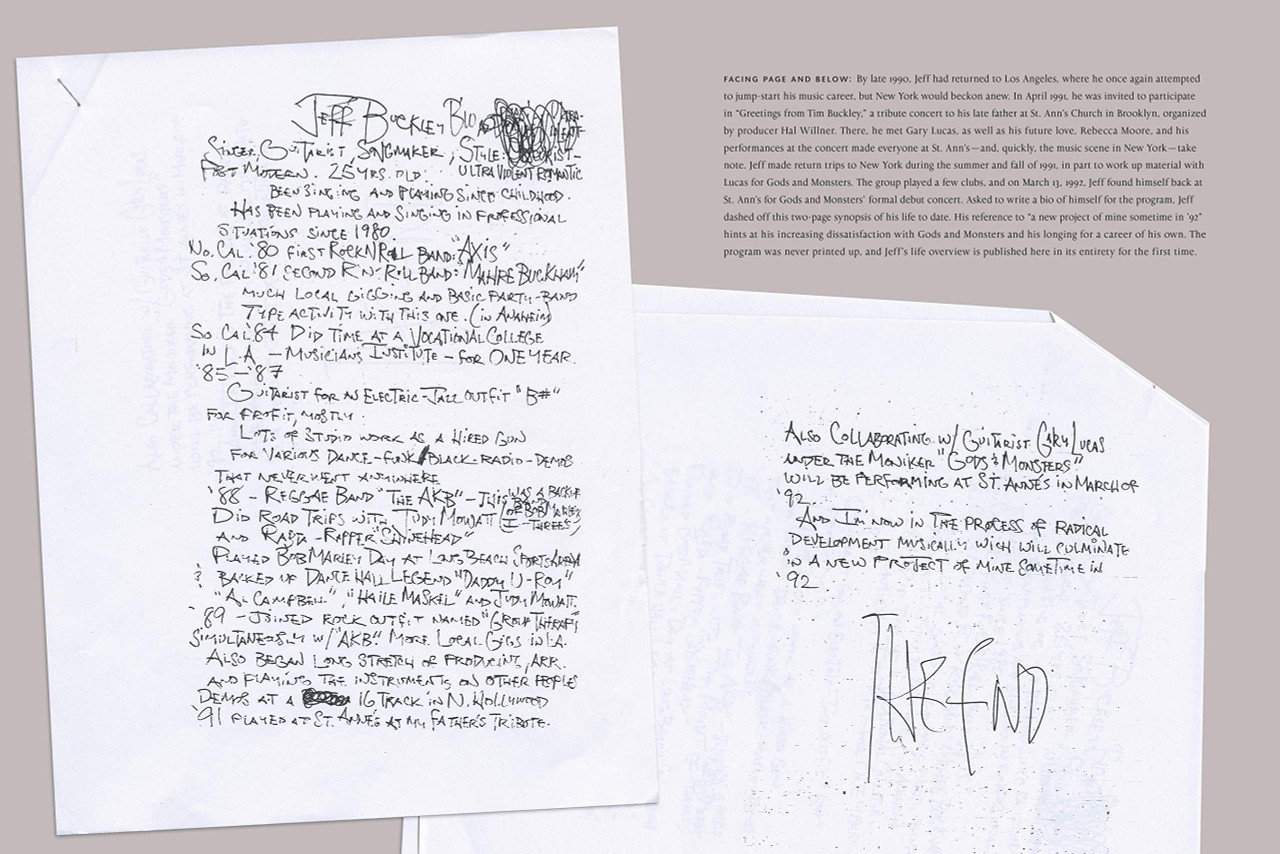 Jeff Buckley Bio
Singer, Guitarist, Songmaker, Style:
Post Modern. 25 yrs. old. Ultra Violent Romantic
Been singing and playing since childhood.
Has been playing and singing in professional
situations since 1980.
No. Cal. '80 first Rock N Roll band: "Axis"
So. Cal '81 second R'n'Roll band: "Mahre Buckham"
much local gigging and basic party-band
type activity with this one. (in Anaheim)
So. Cal '84 Did time at a Vocational College
in L.A. – Musicians Institute – for ONE YEAR.
'85 – '87
Guitarist for an Electric-Jazz outfit "B#"
for profit, mostly.
Lots of studio work as a hired gun
for various dance-funk/black-radio-demos
that never went anywhere
'88 – Reggae Band "The AKB" – This was a backup
Did road trips with Judy Mowatt (of Bob Marley's I-Threes)
and Rasta-Rapper "Shinehead"
Played Bob Marley Day at Long Beach Sports Arena
? Backed up Dance Hall Legend "Daddy U-Roy"
"Al Campbell", "Haile Maskel" and Judy Mowatt.
'89 – Joined rock outfit named "Group Therapy"
simultaneously w/ "AKB" More local gigs in L.A.
Also began long stretch of producing, arr.
and playing the instruments on other peoples
demos at a 16 track in N. Hollywood
'91 played at St. Anne's at my father's tribute.
FACING PAGE AND BELOW: By late 1990, Jeff had returned to Los Angeles, where he once again attempted
to jump-start his music career, but New York would beckon anew. In April 1991, he was invited to participate
in "Greetings from Tim Buckley," a tribute concert to his late father at St. Ann's Church in Brooklyn, organized
by producer Hal Willner. There, he met Gary Lucas, as well as his future love, Rebecca Moore, and his
performances at the concert made everyone at St. Ann's—and, quickly, the music scene in New York—take
note. Jeff made return trips to New York during the summer and fall of 1991, in part to work up material with
Lucas for Gods and Monsters. The group played a few clubs, and on March 13, 1992, Jeff found himself back at
St. Ann's for Gods and Monsters' formal debut concert. Asked to write a bio of himself for the program, Jeff
dashed off this two-page synopsis of his life to date. His reference to "a new project of mine sometime in '92"
hints at his increasing dissatisfaction with Gods and Monsters and his longing for a career of his own. The
program was never printed up, and Jeff's life overview is published here in its entirety for the first time.
Also Collaborating w/ Guitarist Gary Lucas
under the moniker "Gods & Monsters"
will be performing at St. Anne's in March of
'92.
And I'm now in the process of radical
development musically wich will culminate
in a new project of mine sometime in
'92.
The End